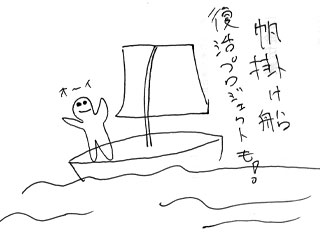 帆掛け船
復活プロジェクトも!!
オーイ